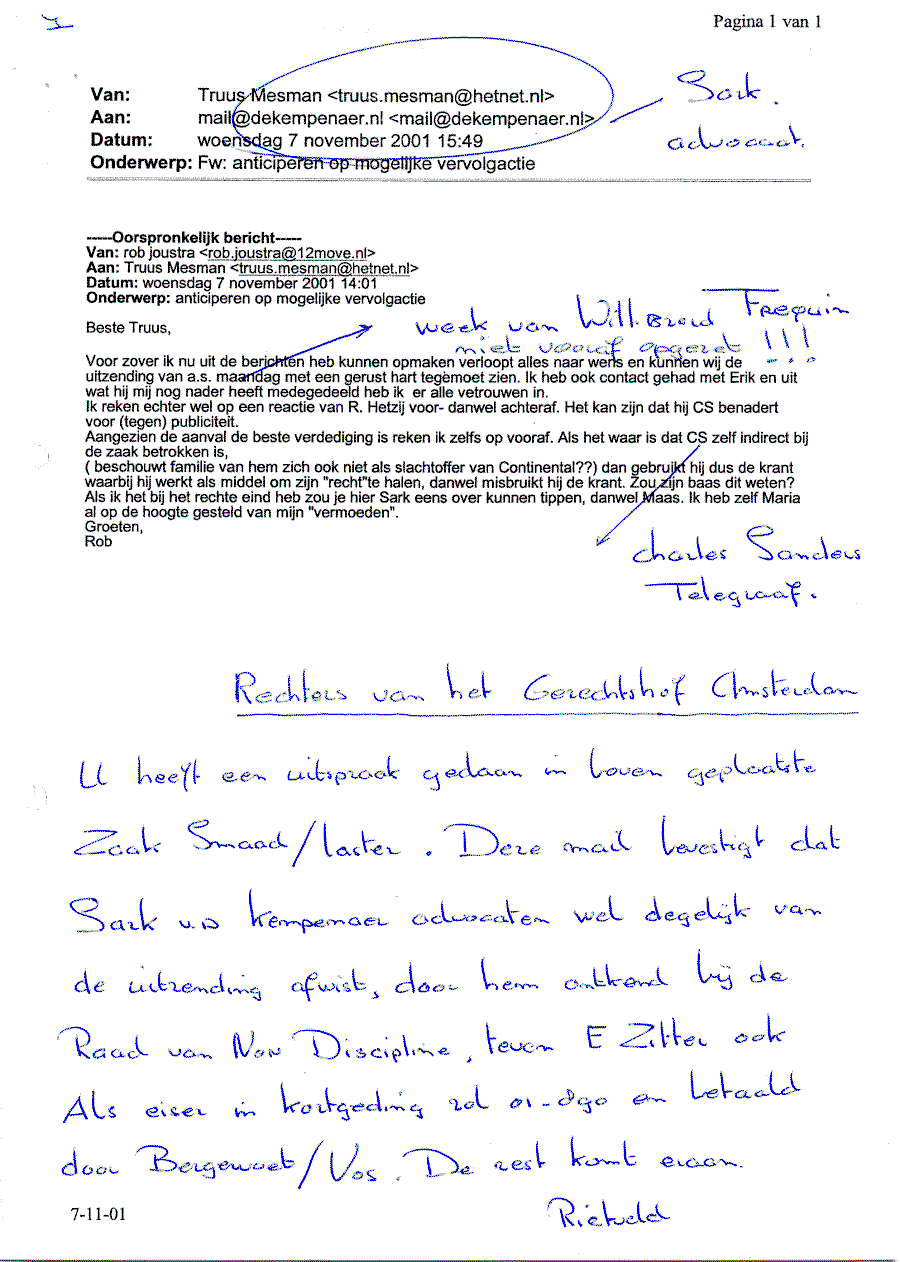 Pagina 1 van 1
Van: Truus Mesman <truus.mesman@hetnet.nl>
Aan: mail@dekempenaer.nl <mail@dekempenaer.nl>
Datum: woensdag 7 november 2001 15:49
Onderwerp: Fw: anticiperen op mogelijke vervolgactie
Sark.
advocaat.
-----Oorspronkelijk bericht-----
Van: rob joustra <rob.joustra@12move.nl>
Aan: Truus Mesman <truus.mesman@hetnet.nl>
Datum: woensdag 7 november 2001 14:01
Onderwerp: anticiperen op mogelijke vervolgactie
week van Willibrord Frequin
niet vooraf opgezet !!!
Beste Truus,
Voor zover ik nu uit de berichten heb kunnen opmaken verloopt alles naar wens en kunnen wij de
uitzending van a.s. maandag met een gerust hart tegemoet zien. Ik heb ook contact gehad met Erik en uit
wat hij mij nog nader heeft medegedeeld heb ik er alle vetrouwen in.
Ik reken echter wel op een reactie van R. Hetzij voor- danwel achteraf. Het kan zijn dat hij CS benadert
voor (tegen) publiciteit.
Aangezien de aanval de beste verdediging is reken ik zelfs op vooraf. Als het waar is dat CS zelf indirect bij
de zaak betrokken is,
( beschouwt familie van hem zich ook niet als slachtoffer van Continental??) dan gebruikt hij dus de krant
waarbij hij werkt als middel om zijn "recht"te halen, danwel misbruikt hij de krant. Zou zijn baas dit weten?
Als ik het bij het rechte eind heb zou je hier Sark eens over kunnen tippen, danwel Maas. Ik heb zelf Maria
al op de hoogte gesteld van mijn "vermoeden".
Groeten,
Rob
Charles Sanders
Telegraaf.
Rechters van het Gerechtshof Amsterdam
U heeft een uitspraak gedaan in boven geplaatste
Zaak Smaad/laster. Deze mail bevestigt dat
Sark v.D Kempenaer advocaten wel degelijk van
de uitzending afwist, door hem ontkend bij de
Raad van Discipline, teven E Zitter ook
Als eiser in kortgeding rol 01-890 en betaald
door Bergewoet/Vos. De rest komt eraan.
7-11-01
Rietveld